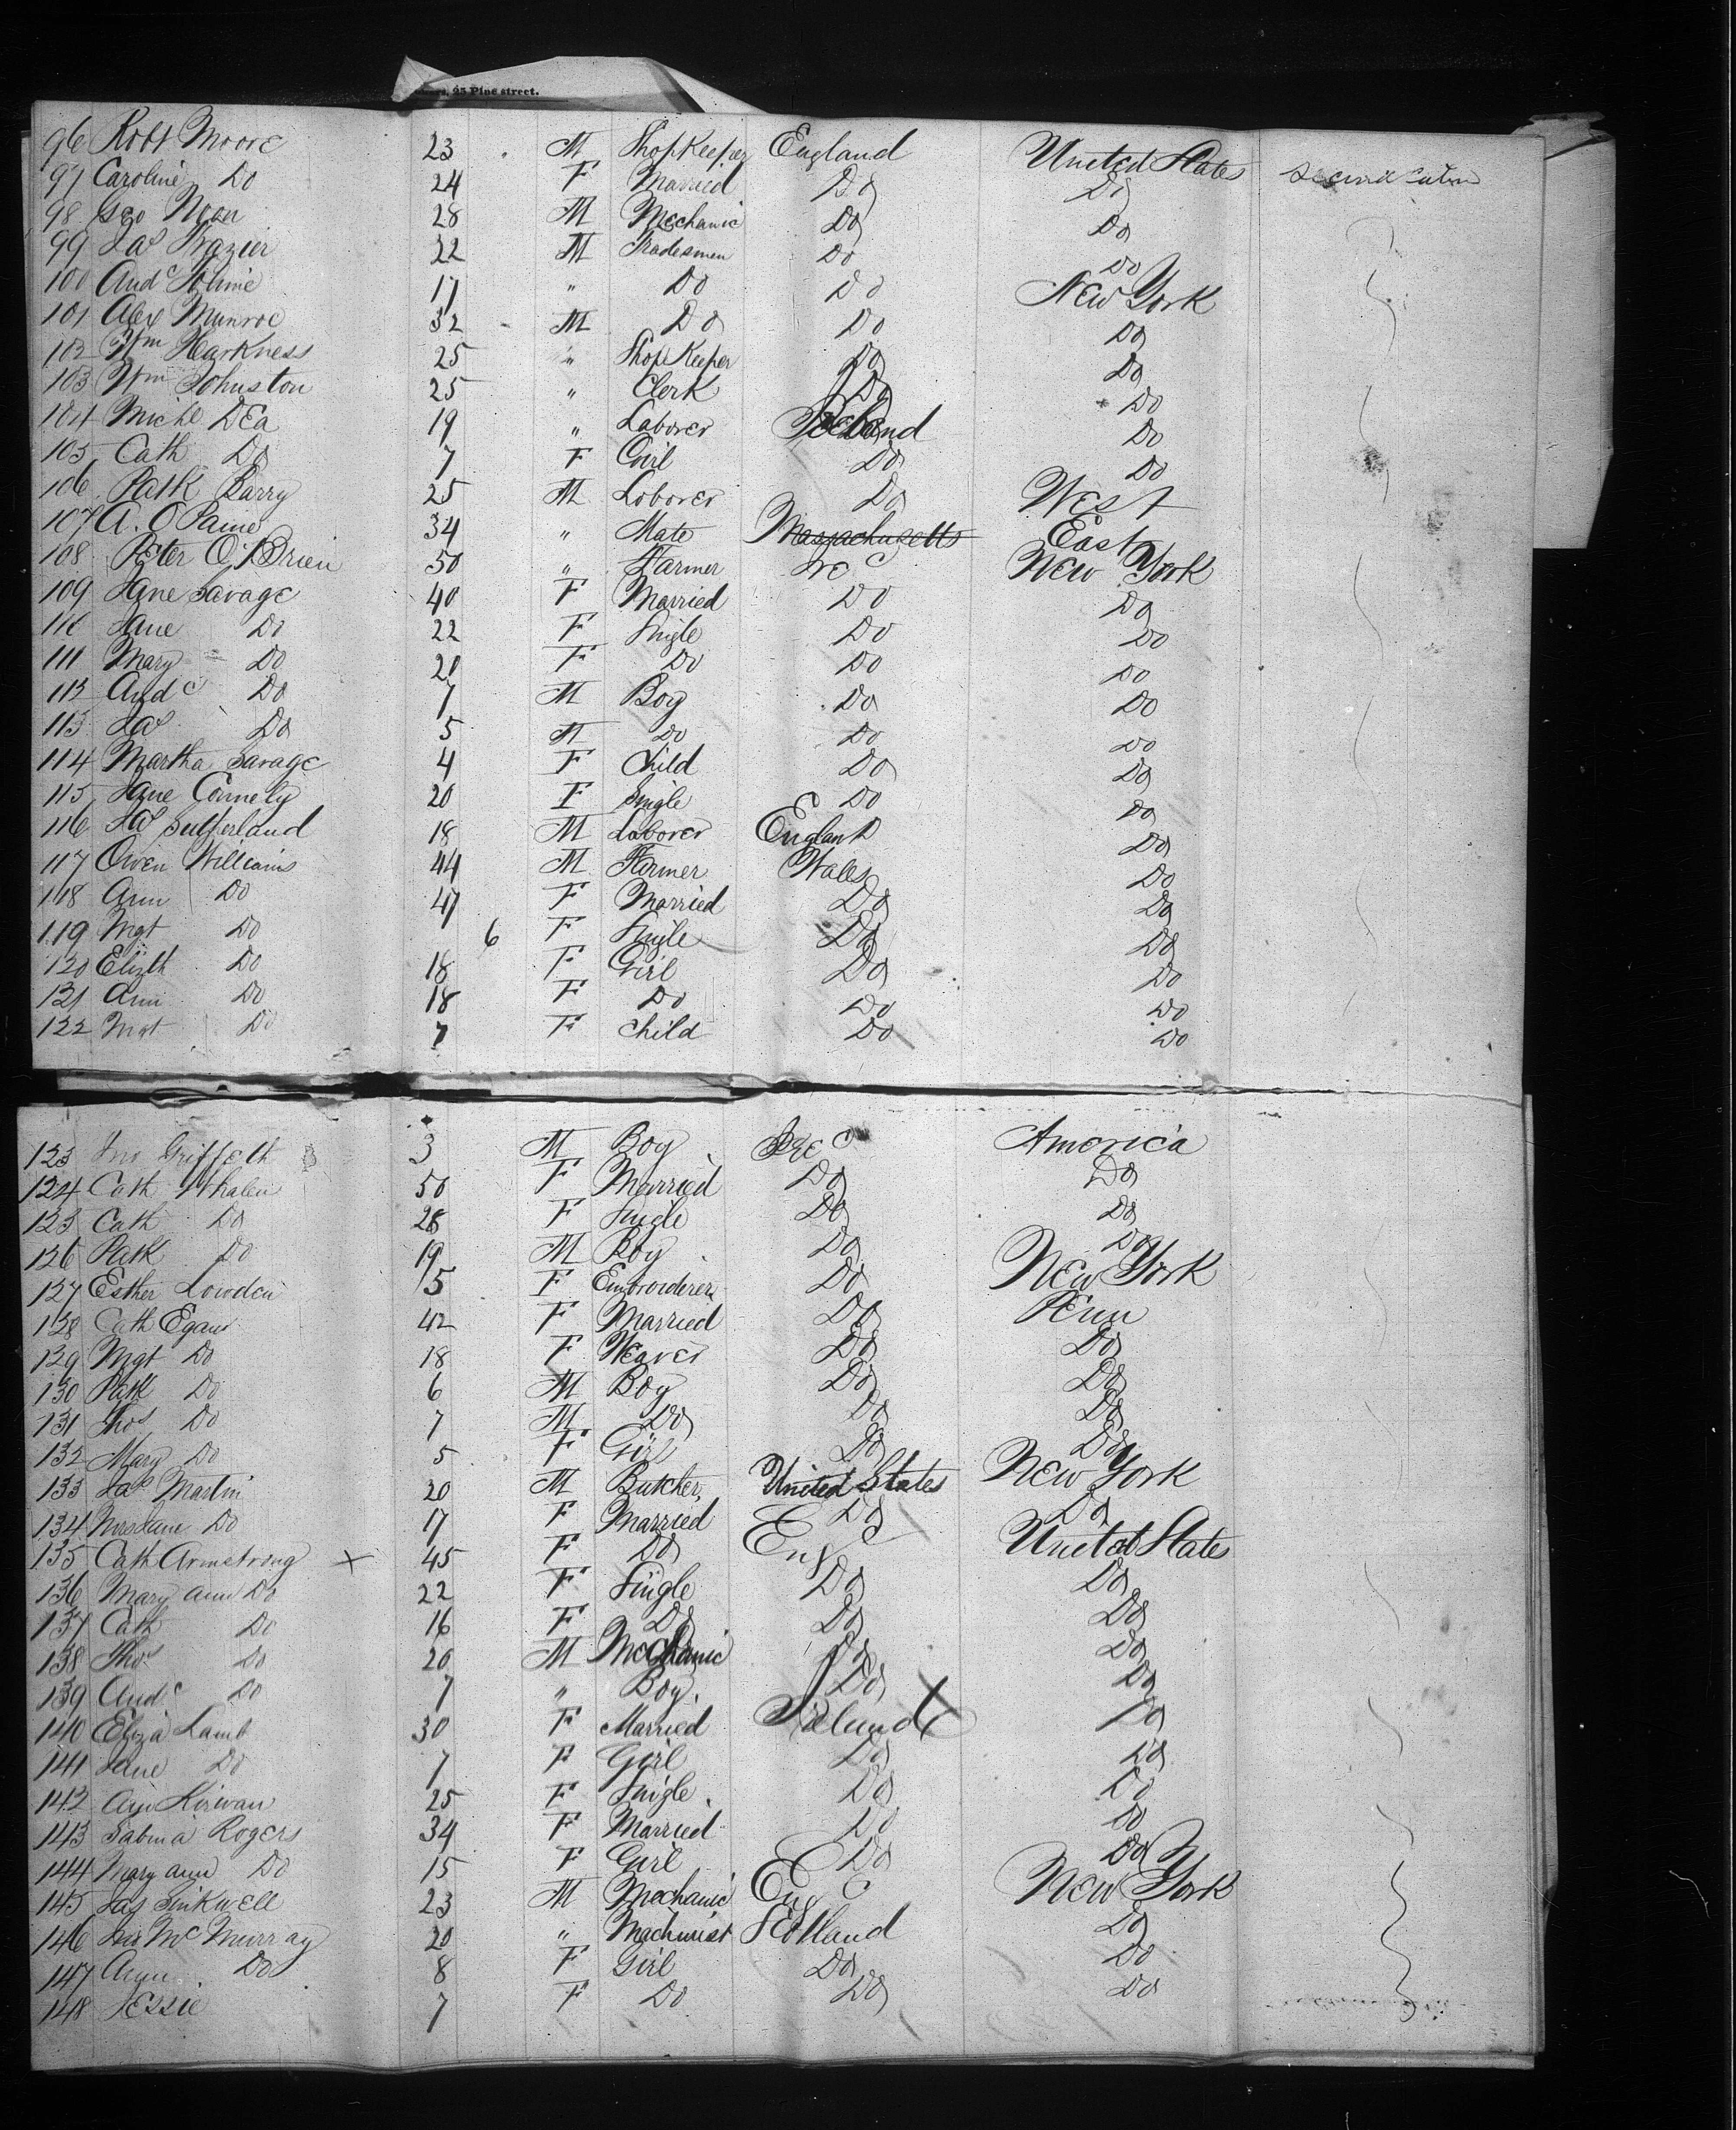 25 Pine street.
96 Robt Moore 23 M ShopKeeper England United States second Cabin
97 Caroline Do 24 F Married Do Do
98 Geo 28 M Mechanic Do Do
99 Jas Frazier 22 M Tradesmen Do Do
100 Andw 17 " Do Do New York
101 Alex Munroe 32 M Do Do Do
102 Wm Harkness 25 " Shop Keeper Do Do
103 Wm Johnston 25 " Clerk Do Do
104 Michl DEa 19 " Laborer Ireland Do
105 Cath Do 7 F Girl Do Do
106 Patk Barry 25 M Laborer Do West
107 A. O Paine 34 " Mate Massachusetts East
108 Peter O'Brien 50 " Farmer Ire New York
109 Jane Savage 40 F Married Do Do
110 Jane Do 22 F Single Do Do
111 Mary Do 20 F Do Do Do
113 Andw Do 7 M Boy Do Do
113 Jas Do 5 M Do Do Do
114 Martha Savage 4 F Child Do Do
115 Jane Connely 20 F Single Do Do
116 Jas Sutherland 18 M Laborer England Do
117 Owen Williams 44 M Farmer Wales Do
118 Ann Do 47 F Married Do Do
119 Mgt Do 6 F Single Do Do
120 Elizth Do 18 F Girl Do Do
121 Ann Do 18 F Do Do Do
122 Mgt Do 7 F Child Do Do
123 Jno Griffeth 3 M Boy Ire America
124 Cath Whalen 50 F Married Do Do
125 Cath Do 28 F Single Do Do
126 Patk Do 19 M Boy Do Do
127 Esther Lowden 15 F Embroiderer Do New York
128 Cath Egan 42 F Married Do Penn
129 Mgt Do 18 F Weaver Do Do
130 Patk Do 6 M Boy Do Do
131 Thos Do 7 M Do Do Do
132 Mary Do 5 F Girl Do Do
133 Jas Martin 20 M Butcher United States New York
134 Mrs Jane Do 17 F Married Do Do
135 Cath Armstrong x 45 F Do Eng United States
136 Mary Ann Do 22 F Single Do Do
137 Cath Do 16 F Do Do Do
138 Thos Do 20 M Mechanic Do Do
139 Andw Do 7 " Boy Do Do
140 Eliza Lamb 30 F Married Ireland X Do
141 Jane Do 7 F Girl Do Do
142 Ann Kirwan 25 F Single Do Do
143 Sabina Rogers 34 F Married Do Do
144 Mary Ann Do 15 F Girl Do Do
145 Jas Sinkwell 23 M Mechanic Eng New York
146 Jno McMurray 20 " Machinist Scotland Do
147 Ann Do 8 F Girl Do Do
148 Jessie 7 F Do Do Do